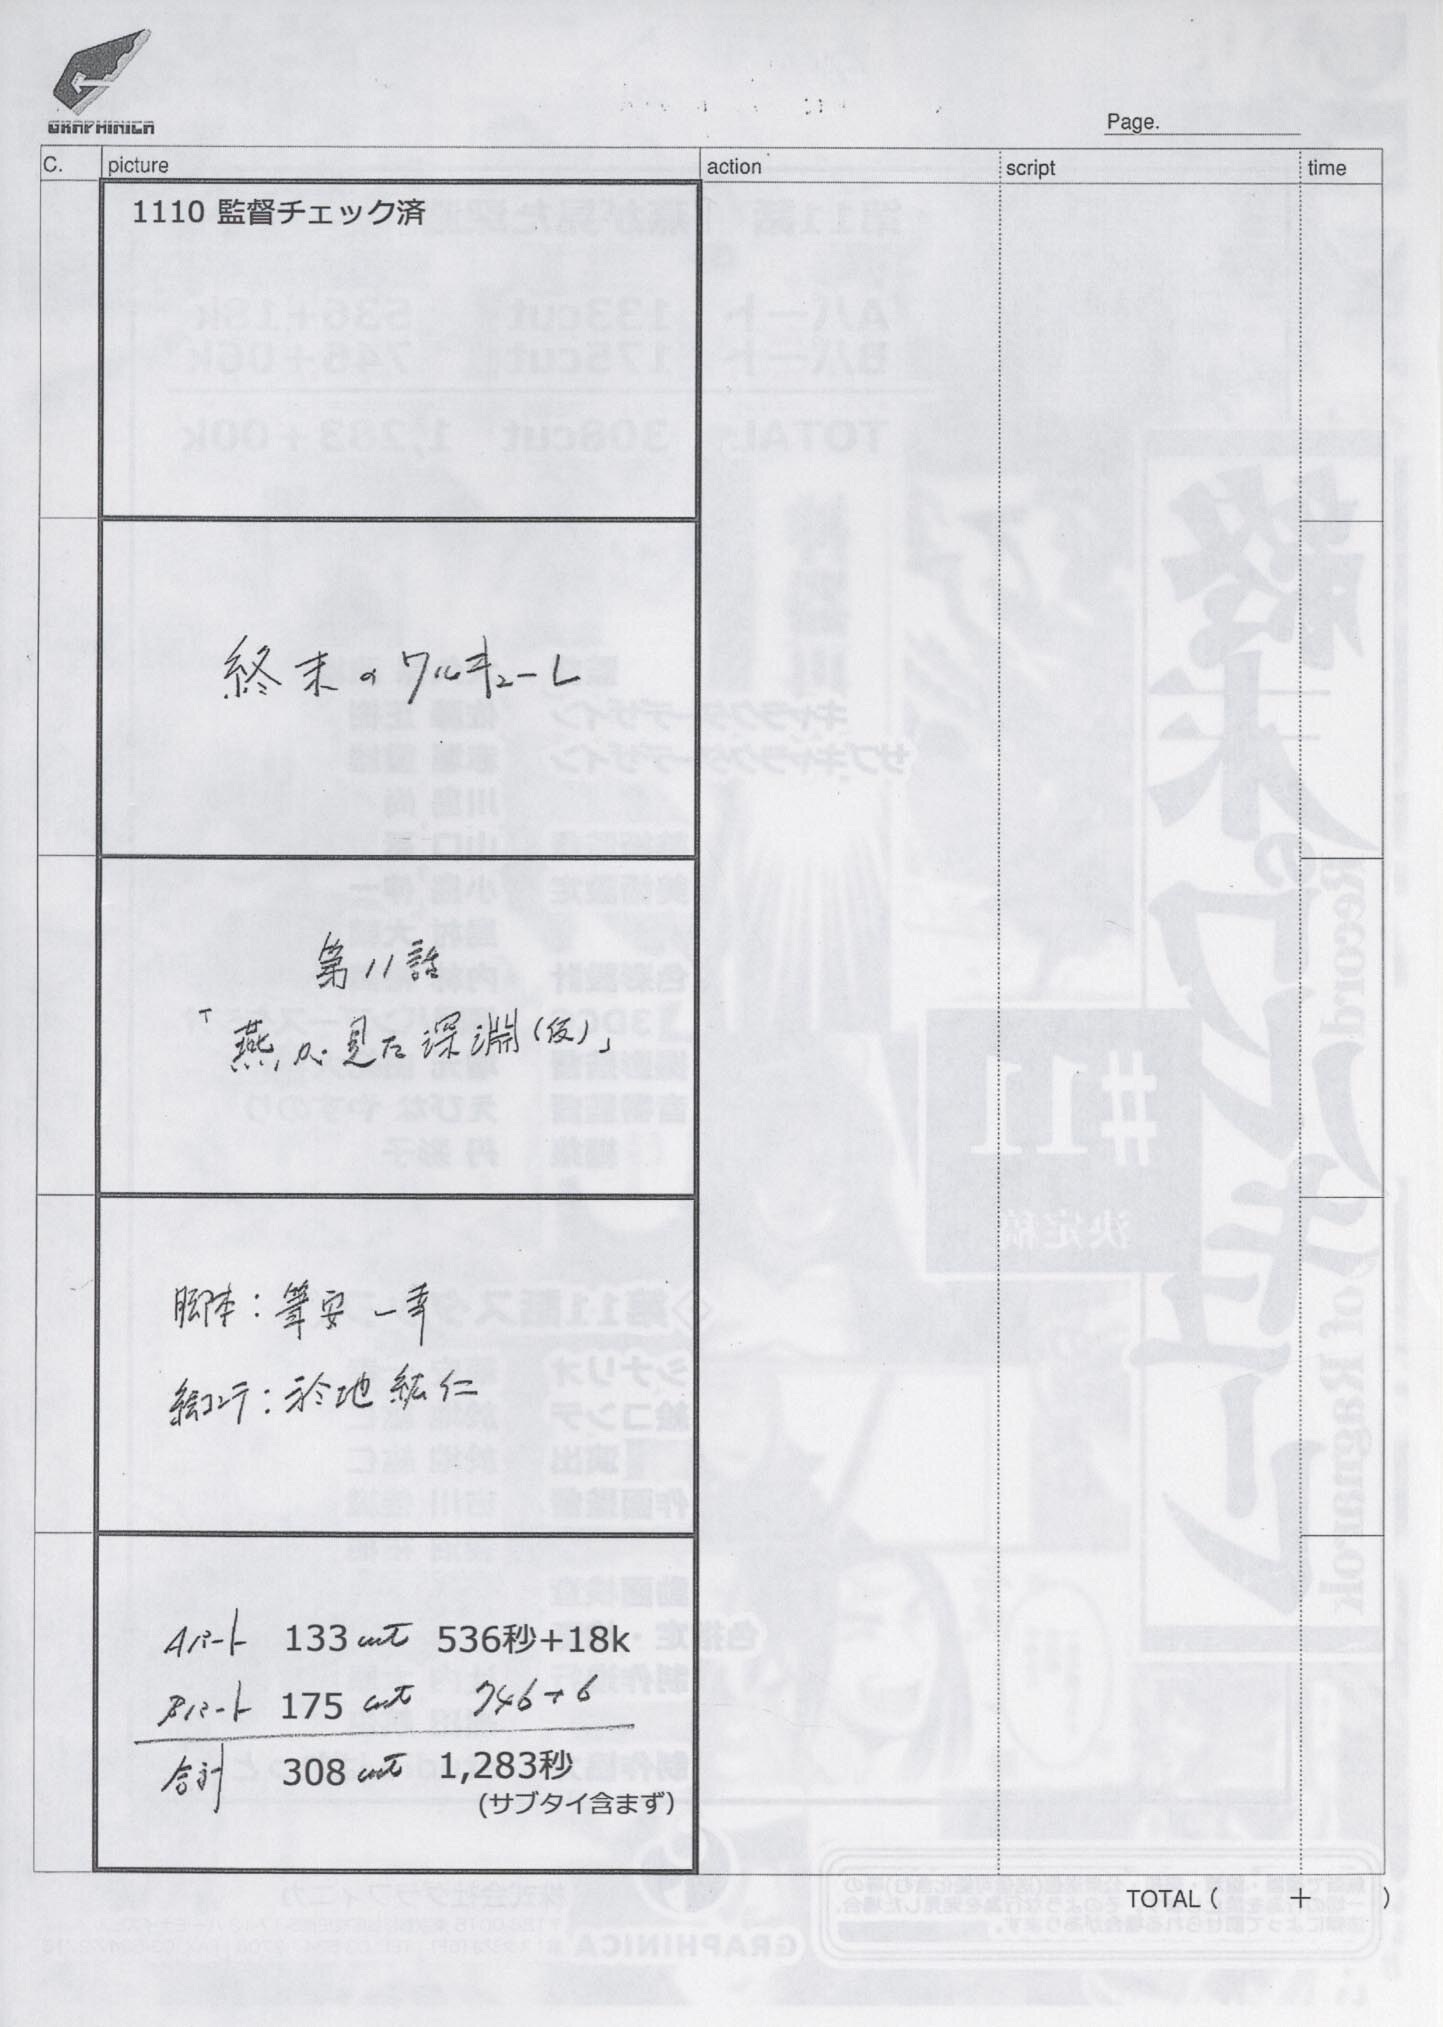 GRAPHINICA
Page.
C.
picture
action
script
time
1110 監督チェック済
終末のワルキューレ
第11話
「燕が見た深淵(仮)」
脚本：筆安一幸
絵コンテ：於地紘仁
Aパート 133 cut 536秒+18k
Bパート 175 cut 746+6
合計 308 cut 1,283秒
(サブタイ含まず)
TOTAL ( + )